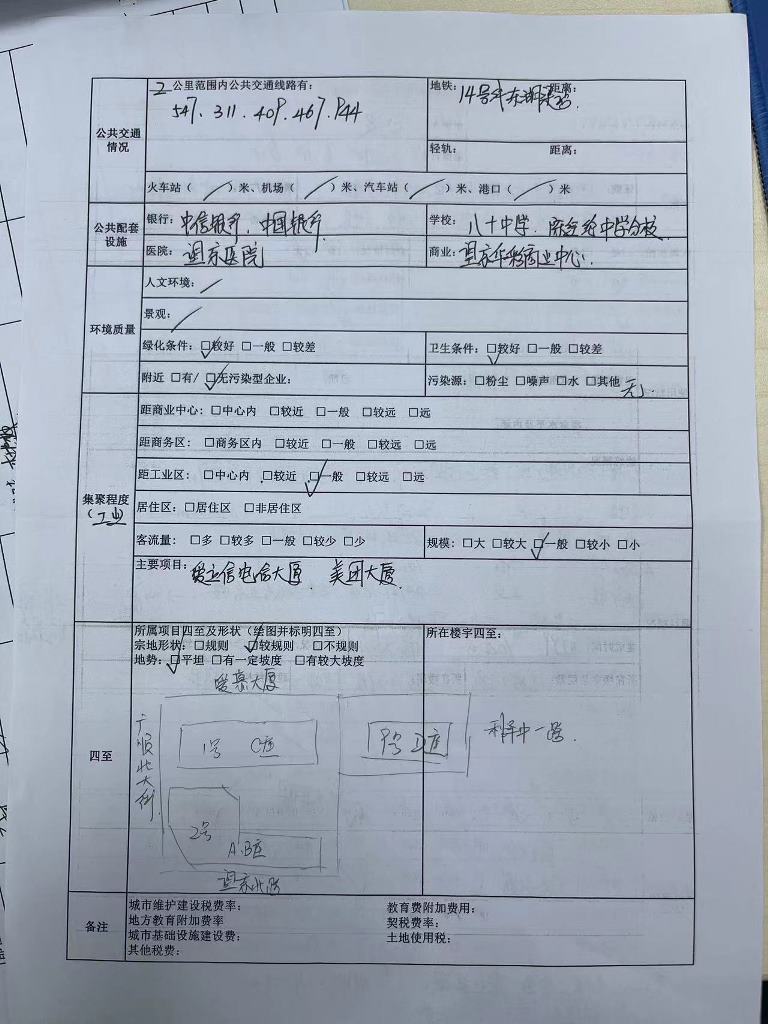 2 公里范围内公共交通线路有: 地铁: 14号 距离:
547. 311. 409. 467. 944
公共交通情况
轻轨: 距离:
火车站（ ）米、机场（ ）米、汽车站（ ）米、港口（ ）米
公共配套设施
银行: 中信银行. 中国银行. 学校: 八十中学. 中学分校.
医院: 望京医院 商业: 望京华彩商业中心.
环境质量
人文环境:
景观:
绿化条件: □较好 □一般 □较差 卫生条件: □较好 □一般 □较差
附近 □有/ □无污染型企业: 污染源: □粉尘 □噪声 □水 □其他 无.
集聚程度
（工业）
距商业中心: □中心内 □较近 □一般 □较远 □远
距商务区: □商务区内 □较近 □一般 □较远 □远
距工业区: □中心内 □较近 □一般 □较远 □远
居住区: □居住区 □非居住区
客流量: □多 □较多 □一般 □较少 □少 规模: □大 □较大 □一般 □较小 □小
主要项目: 爱立信电信大厦. 美团大厦.
四至
所属项目四至及形状（绘图并标明四至） 所在楼宇四至:
宗地形状: □规则 □较规则 □不规则
地势: □平坦 □有一定坡度 □有较大坡度
爱慕大厦
广顺北大街
1号 C座
9号 D座
利泽中一路.
2号
A.B座
望京北路
备注
城市维护建设税费率: 教育费附加费用:
地方教育附加费率 契税费率:
城市基础设施建设费: 土地使用税:
其他税费: